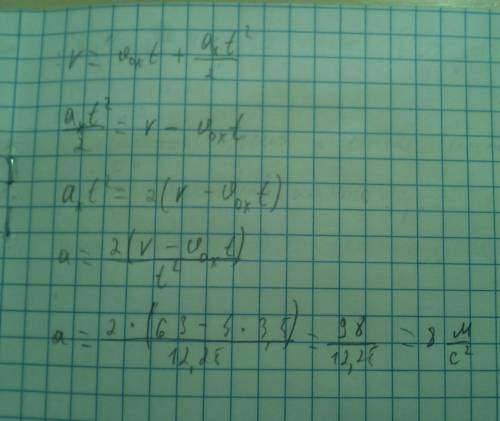 r = v₀ₓt + aₓt²/2
aₓt²/2 = r − v₀ₓt
aₓt² = 2(r − v₀ₓt)
a = 2(r − v₀ₓt)/t²
a = 2·(63 − 4·3,5)/12,25 = 98/12,25 = 8 м/с²